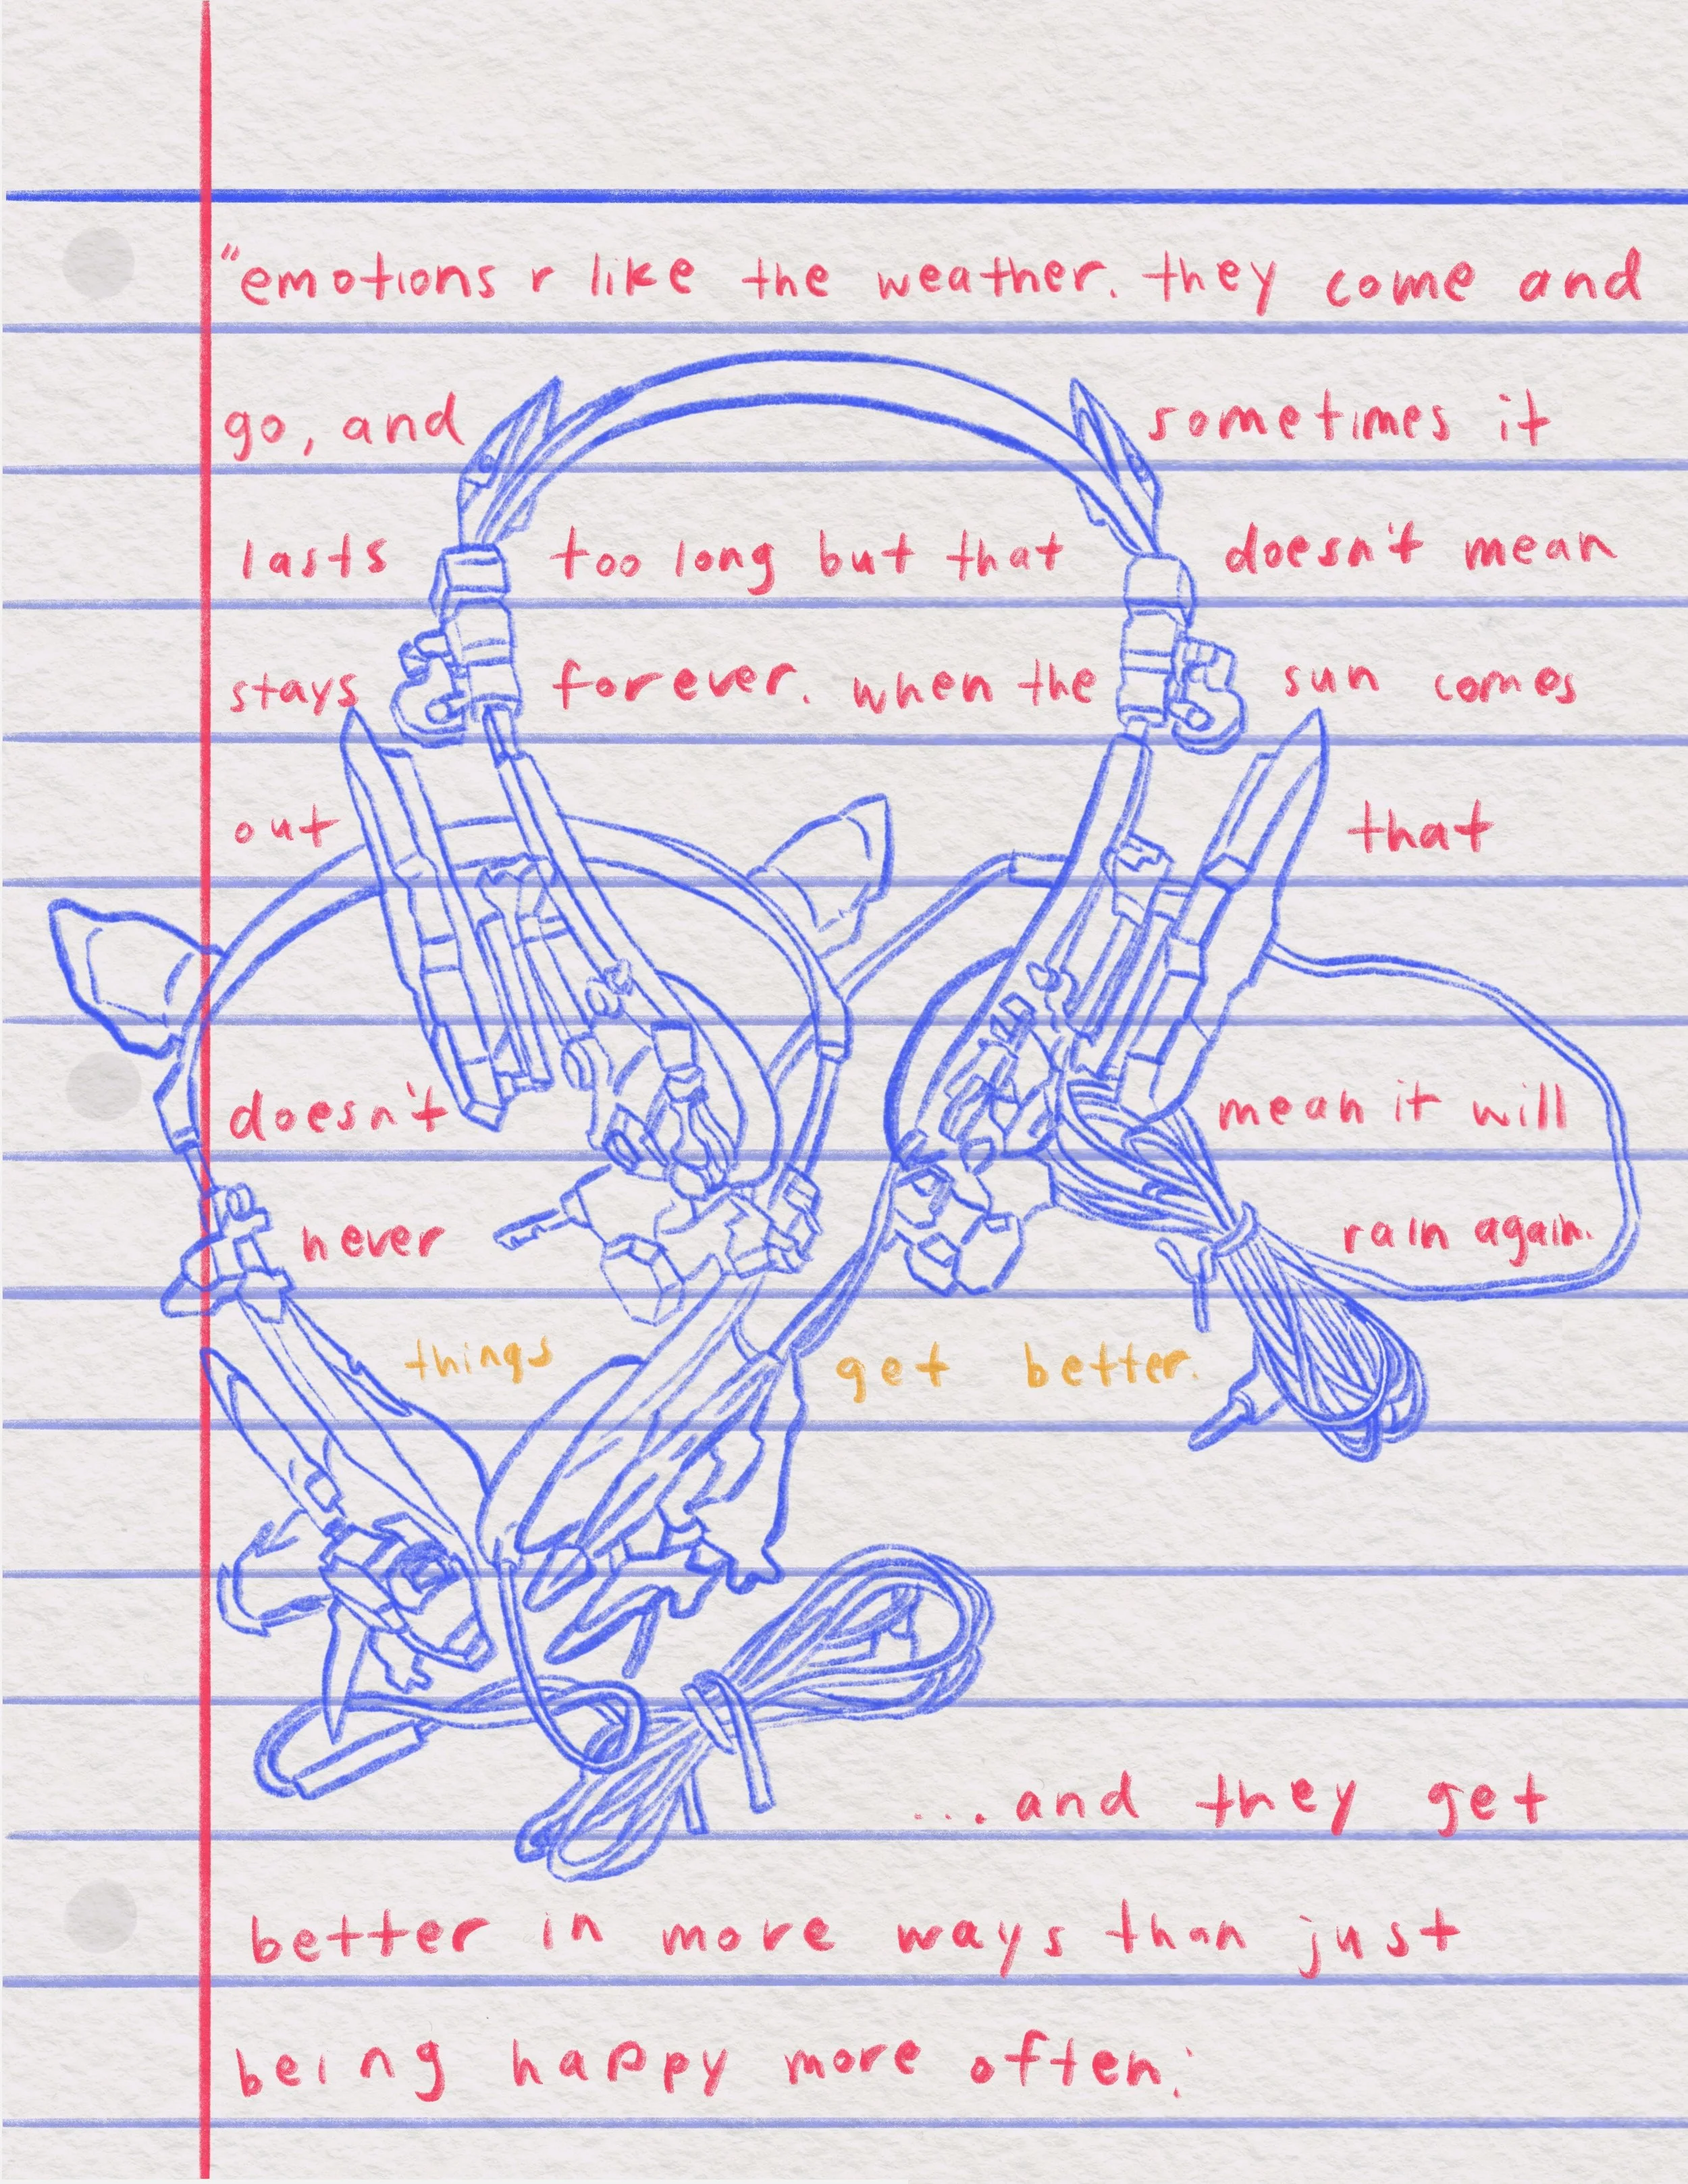 "emotions r like the weather. they come and
go, and sometimes it
lasts too long but that doesn't mean
stays forever. when the sun comes
out that
doesn't mean it will
never rain again.
things get better.
...and they get
better in more ways than just
being happy more often.